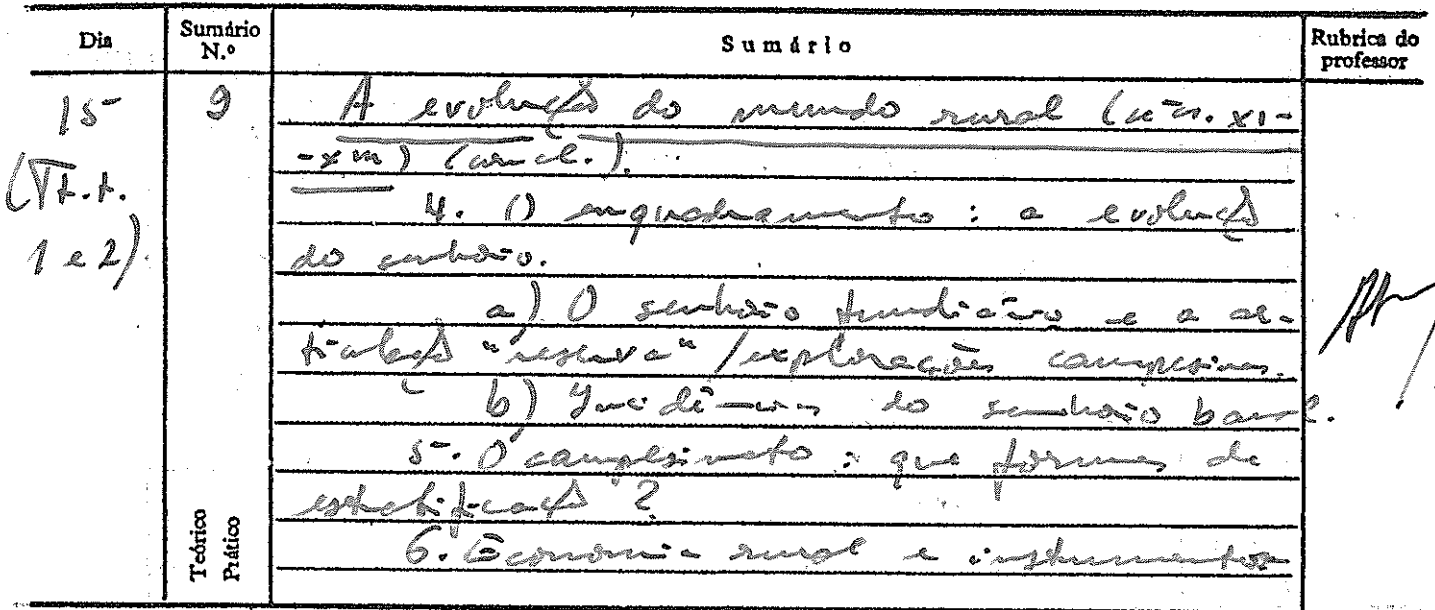 Dia Sumário N.º Sumário Rubrica do professor
15 9 A evolução do mundo rural (sécs. XI-
(Tt.t. -XIII) (concl.).
1 e 2). 4. O enquadramento: a evolução
do senhorio.
a) O senhorio fundiário e a ar-
ticulação "reserva" / explorações campesinas.
b) Incidências do senhorio banal.
5. O campesinato: que formas de
estratificação?
6. Economia rural e instrumentos
Teórico
Prático